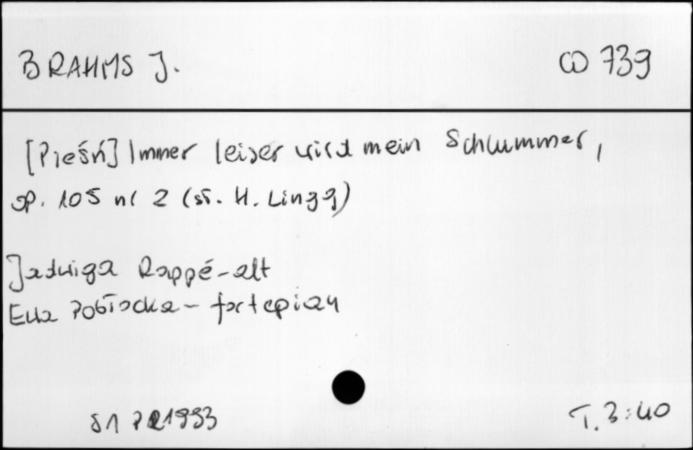 BRAHMS J. CD 739
[Pieśń] Immer leiser wird mein Schlummer,
op. 105 nr 2 (sł. H. Lingg)
Jadwiga Rappé-alt
Ewa Pobłocka - fortepian
1993 T. 3:40